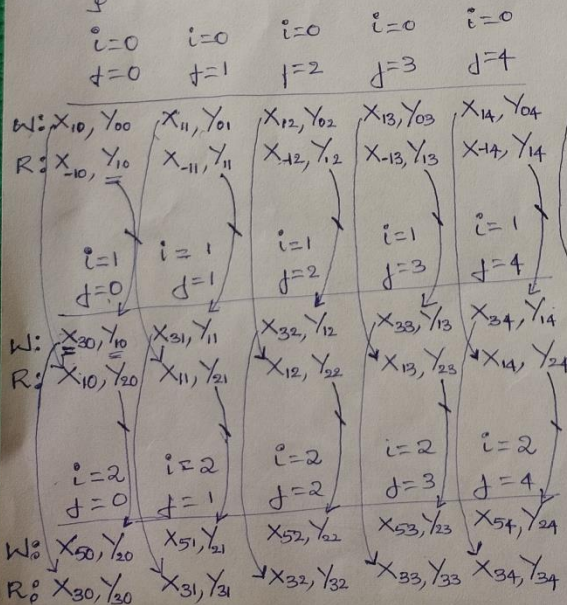 i=0 i=0 i=0 i=0 i=0
j=0 j=1 j=2 j=3 j=4
W: X10, Y00 X11, Y01 X12, Y02 X13, Y03 X14, Y04
R: X-10, Y10 X-11, Y11 X-12, Y12 X-13, Y13 X-14, Y14
i=1 i=1 i=1 i=1 i=1
j=0 j=1 j=2 j=3 j=4
W: X30, Y10 X31, Y11 X32, Y12 X33, Y13 X34, Y14
R: X10, Y20 X11, Y21 X12, Y22 X13, Y23 X14, Y24
i=2 i=2 i=2 i=2 i=2
j=0 j=1 j=2 j=3 j=4
W: X50, Y20 X51, Y21 X52, Y22 X53, Y23 X54, Y24
R: X30, Y30 X31, Y31 X32, Y32 X33, Y33 X34, Y34